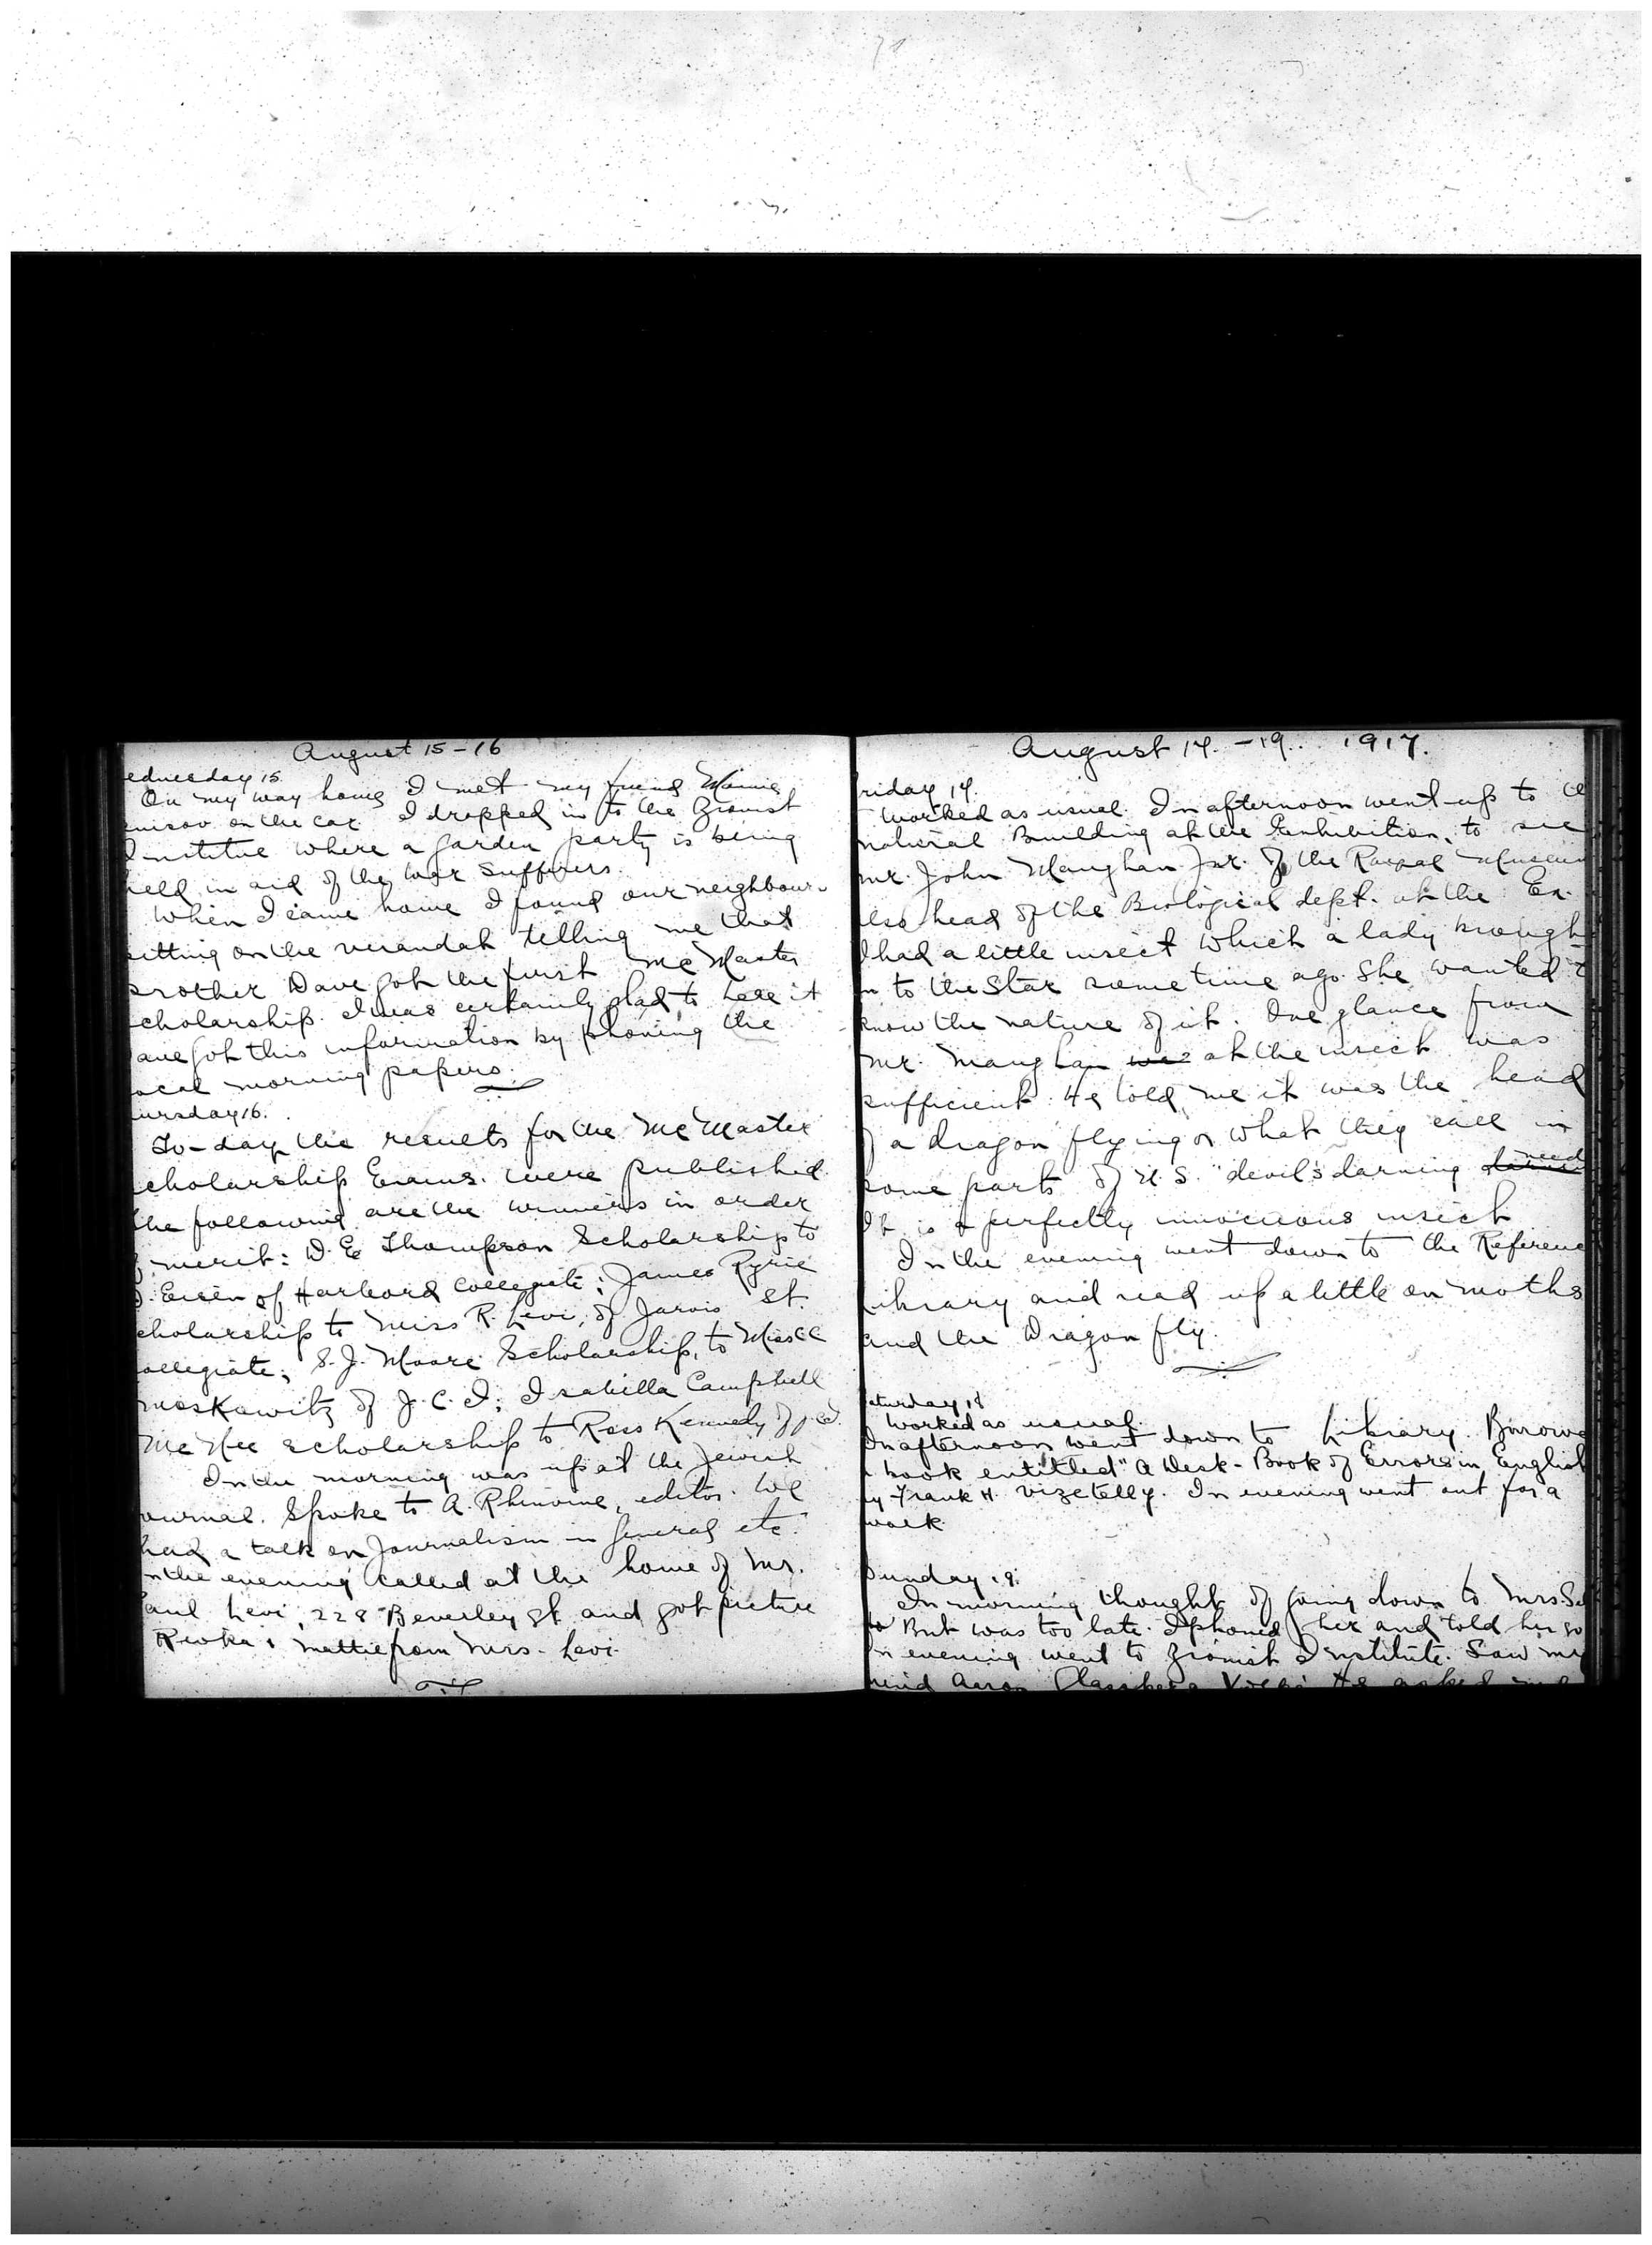 August 15-16
ednesday 15.
On my way home I met my friend Mannie
on the car. I dropped in to the Zionist
Institue where a garden party is being
held in aid of the War Sufferers.
When I came home I found our neighbour
sitting on the verandah telling me that
brother Dave got the first McMaster
cholarship. I was certainly glad to hear it
ave got this information by phoning the
ocal morning papers.
ursday 16.
To-day the results for the McMaster
cholarship Exams. were published.
The following are the winners in order
of merit: D. E Thompson Scholarship to
D. Eisen of Harbord Collegiate; James Ryrie
cholarship to Miss R. Levi, of Jarvis St.
ollegiate; S. J. Moore Scholarship, to Miss
Moskowitz of J. C. I; Isabella Campbell
McNee scholarship to Ross Kennedy of
In the morning was up at the Jewish
ournal. Spoke to A. Rhinvine, editor. We
had a talk on Journalism in general etc.
In the evening called at the home of Mr.
aul Levi, 228 Beverley St. and got picture
Rivka & Mattie from Mrs. Levi.
August 17.-19.. 1917.
riday 17.
Worked as usual. In afternoon went up to
natural Building at the Exhibition, to see
Mr. John Maughan Jnr. of the Royal Museum
also head of the Biological dept. at the Ex.
I had a little insect which a lady brough
in to the Star sometime ago. She wanted t
know the nature of it. One glance from
Mr. Maughan was at the insect was
sufficient. He told me it was the head
of a dragon flying or what they call in
some parts of U.S. "devil's darning need
It is a perfectly innocuous insect
In the evening went down to the Referenc
Library and read up a little on moths
and the Dragon fly.
aturday 18
Worked as usual.
In afternoon went down to Library. Borrowe
a book entitled "A Desk-Book of Errors in English
by Frank H. Vizetelly. In evening went out for a
walk.
Sunday 19.
In morning thought of going down to Mrs.
But was too late. I phoned her and told her so
In evening went to Zionist Institute. Saw my
He asked me